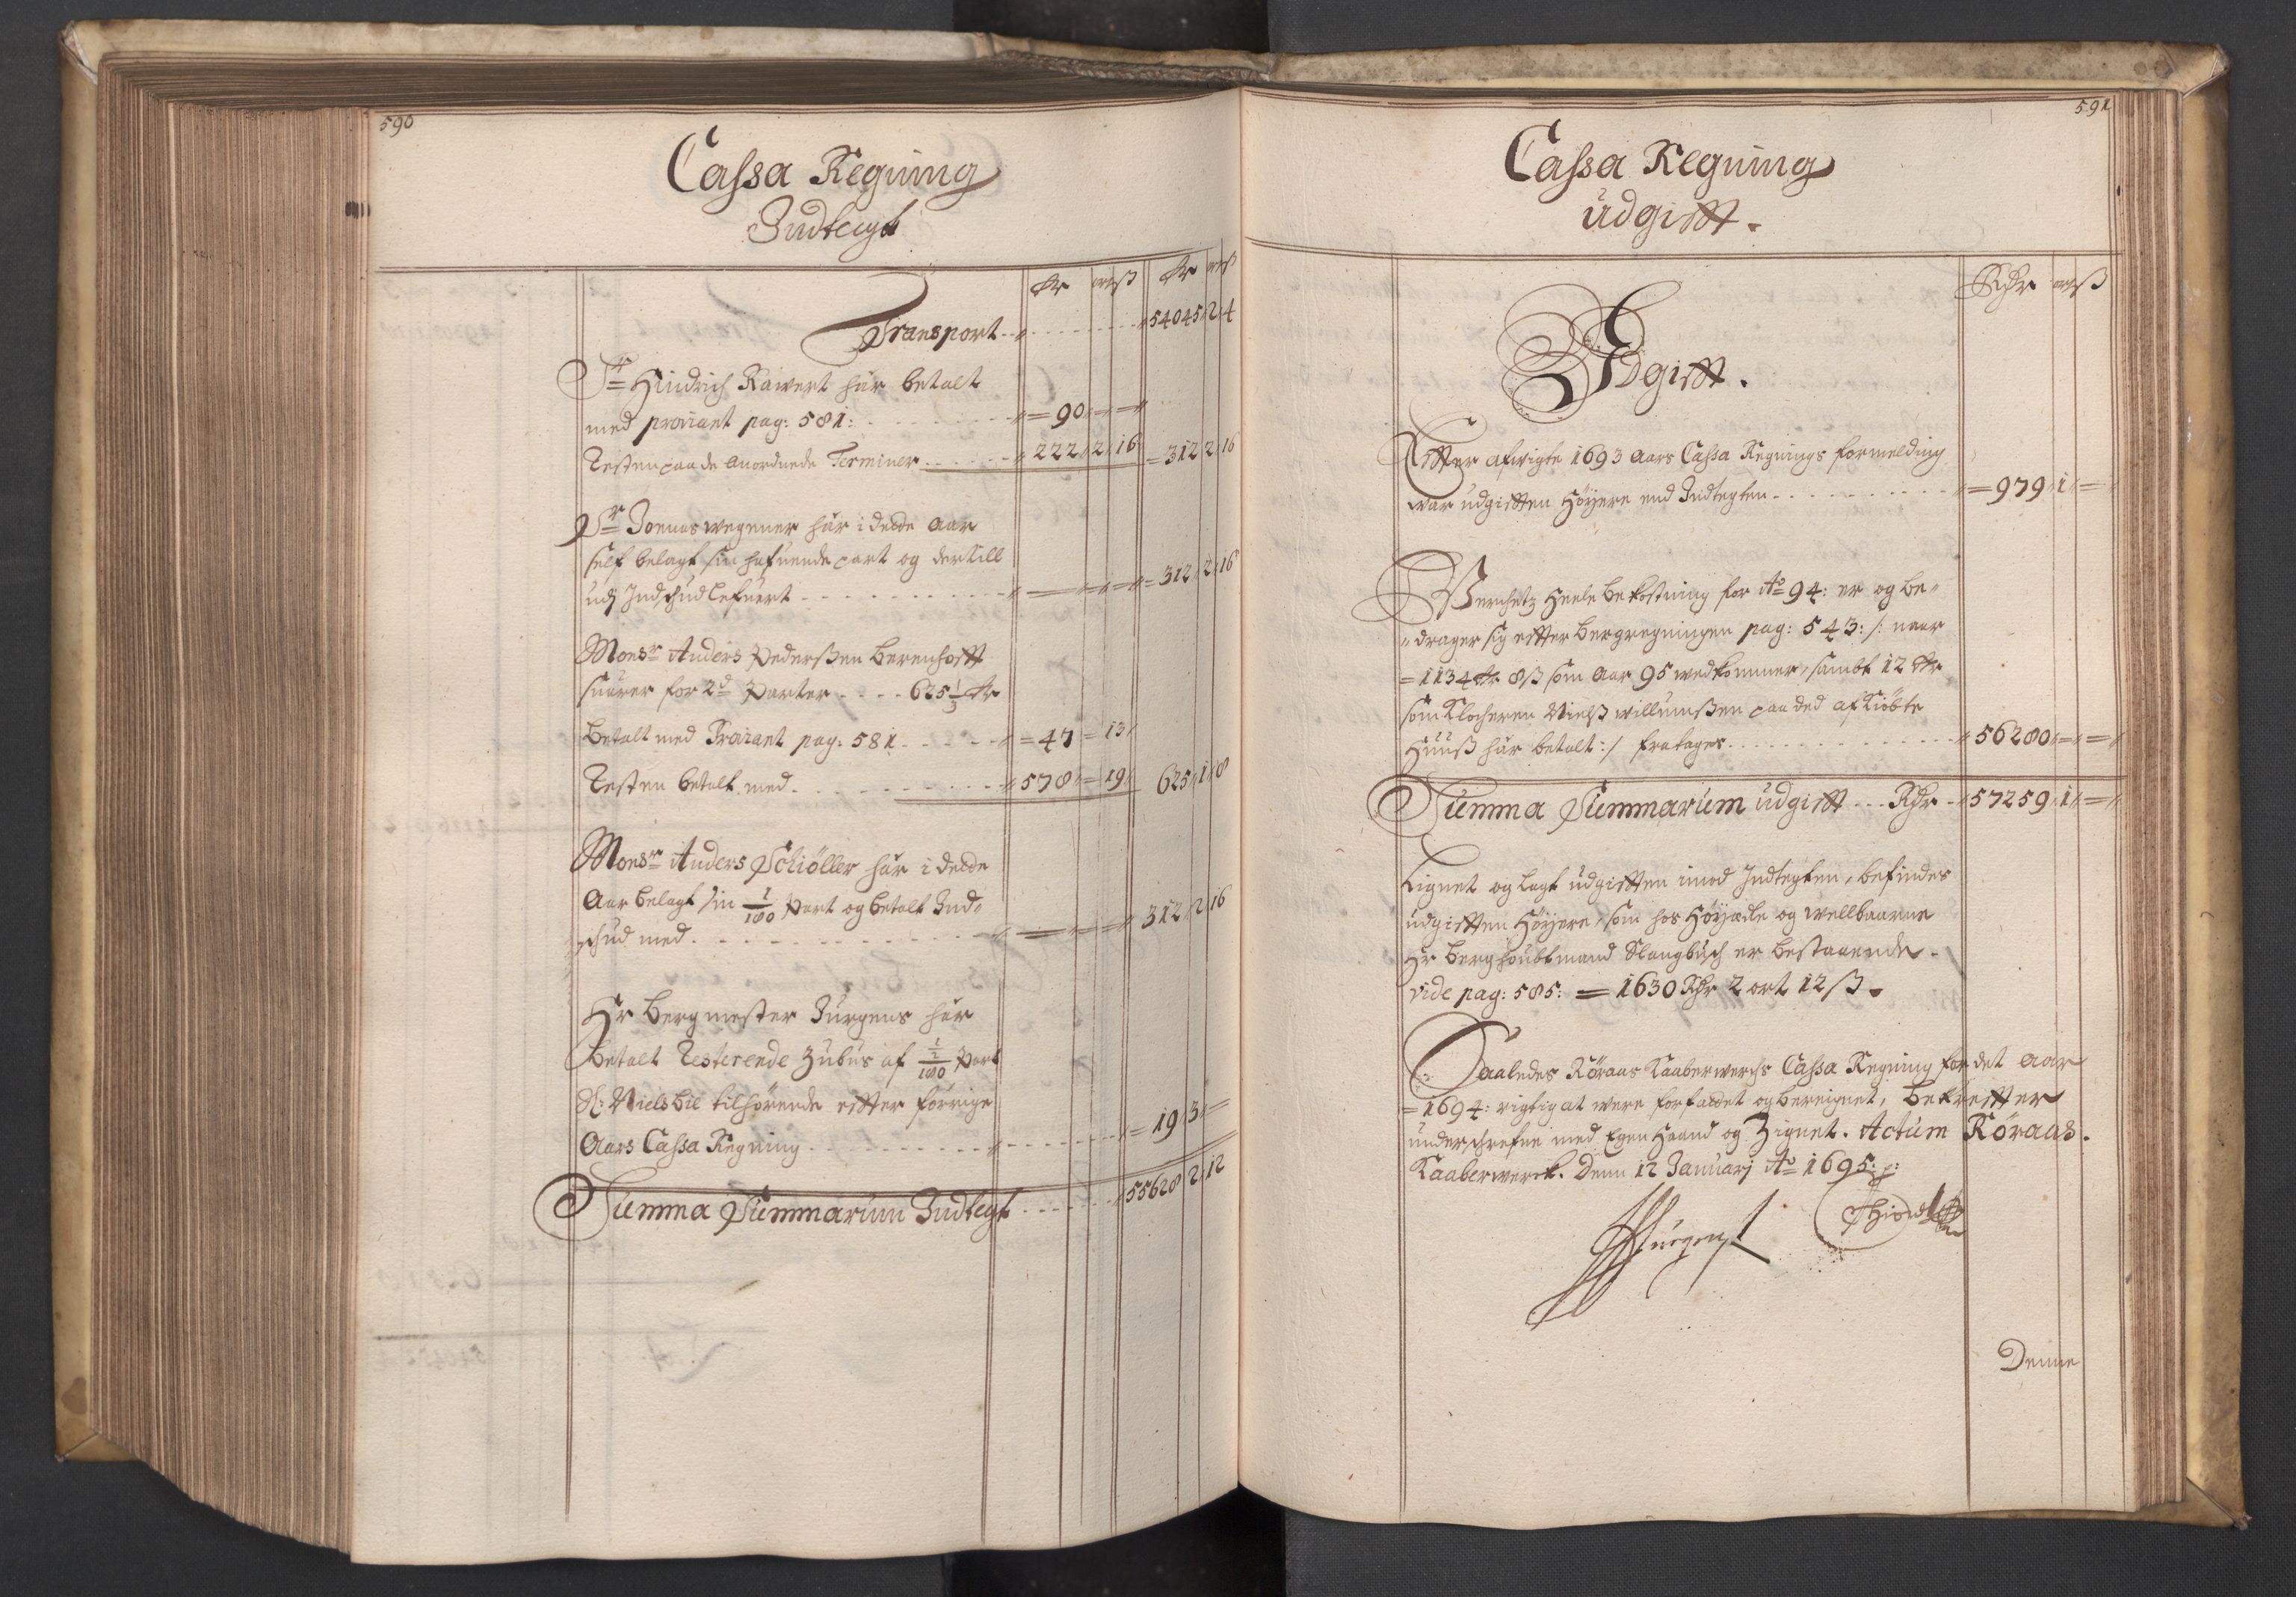 590
Cassa Regning
Indtegt
Rdr ort ß Rdr ort ß
Transport 54045 2 4
Sr Hindrich Rawert har betalt
med proviant pag: 581: = 90 = =
Resten paa de anordnede Terminer 222 2 16 = 312 2 16
Sr Joenas wegener har i dette Aar
self belagt sin hafuende part og dertill
udj Indschud lefuert = = = = 312 2 16
Monsr Anders Pederßen Berenhofft
suarer for 2d Parter 625 1/3 Rdr
Betalt med Proviant pag: 581 = 47 = 13
Resten betalt med 578 = 19 625 1 8
Monsr Anders Schiöller har i dette
Aar belagt sin 1/180 Part og betalt Ind-
schud med = = = 312 2 16
Hr Bergmester Jürgens har
betalt Resterende Zubus af 1/2/180 Part
Sl: Niels bil tilhörende effter forrige
Aars Cassa Regning = 19 3 =
Summa Summarum Indtegt 55628 2 12
591
Cassa Regning
udgifft.
Rdr ort ß
Udgifft.
Effter afwigte 1693 Aars Cassa Regnings formelding
war udgifften Höyere end Indtegten = 979 1 =
Werchetz Heele bekostning for Ao 94: er og be-
drager sig effter Bergregningen pag: 543: /: naar
= 1134 Rdr 8 ß som Aar 95 wedkommer, sambt 12 Rdr
som Klocheren Nielß willumßen paa ded afkiöbte
Huuß har betalt :/ fratages 56280 = =
Summa Summarum udgifft Rdr 57259 1 =
Lignet og lagt udgifften imod Indtegten, befindes
udgifften Höyere, som hos Höyædle og wellbaarne
Hr Berghoubtmand Slangbusch er bestaaende.
vide pag: 585: = 1630 Rdr 2 ort 12 ß.
Saaledes Röraas Kaaberwerchs Cassa Regning for det Aar
= 1694: rigtig at were forfattet og bereignet, bekreffter
underschrefne med Egen Haand og Zignet. Actum Röraas.
Kaaberwerck. Denn 12 Januarj Ao 1695:
Jürgens
Denne